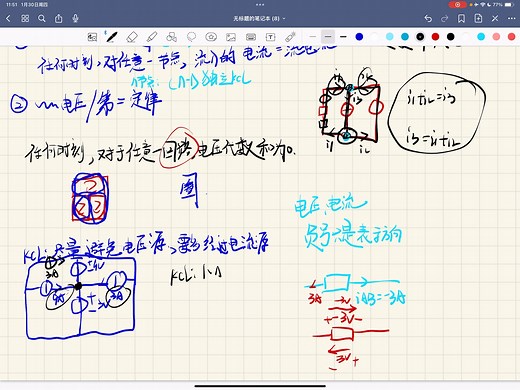 11:51 1月30日周四
77%
无标题的笔记本 (8)
任何时刻,对任意一节点,流入的电流=流出电流
n节点: (n-1)个独立KCL
② 电压/第二定律
任何时刻,对于任意一回路,电压代数和为0.
i1+i2=i3
i3=i1+i2
i1 i2
i3
i1 i2
KCL: 尽量避免电压源,要经过电流源
3A
3A
3A
+
-3V
KCL:
电压、电流
负号是表示方向
3A
iAB=-3A
3V
+ -3V -
- 3V +